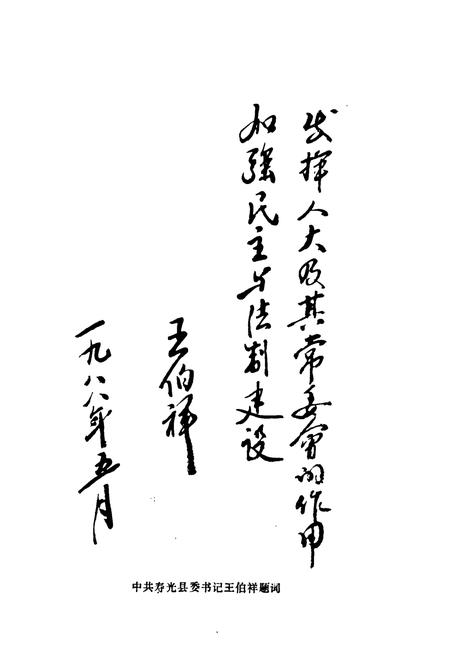 发挥人大及其常委会的作用
加强民主与法制建设
王伯祥
一九八八年五月
中共寿光县委书记王伯祥题词